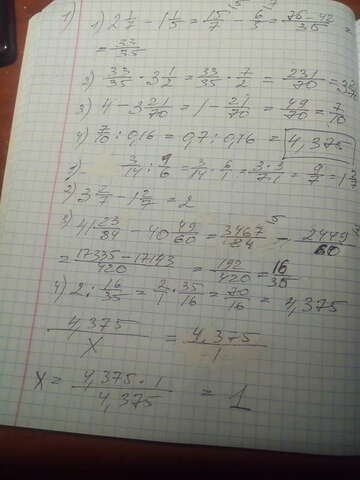 1) 1) 2 1/7 - 1 1/5 = 15/7 - 6/5 = 75-42/35 =
= 33/35
2) 33/35 · 3 1/2 = 33/35 · 7/2 = 231/70 = 3
3) 4 - 3 21/70 = 1 - 21/70 = 49/70 = 7/10
4) 7/10 : 0,16 = 0,7 : 0,16 = 4,375
1) 3/14 : 1/6 = 3/14 · 6/1 = 3·3/7·1 = 9/7 = 1 2/7
2) 3 2/7 - 1 2/7 = 2
3) 41 23/84 - 40 49/60 = 3467/84 5 - 2449/60
= 17335-17143/420 = 192/420 = 16/35
4) 2 : 16/35 = 2/1 · 35/16 = 70/16 = 4,375
4,375/x = 4,375/1
x = 4,375 · 1/4,375 = 1